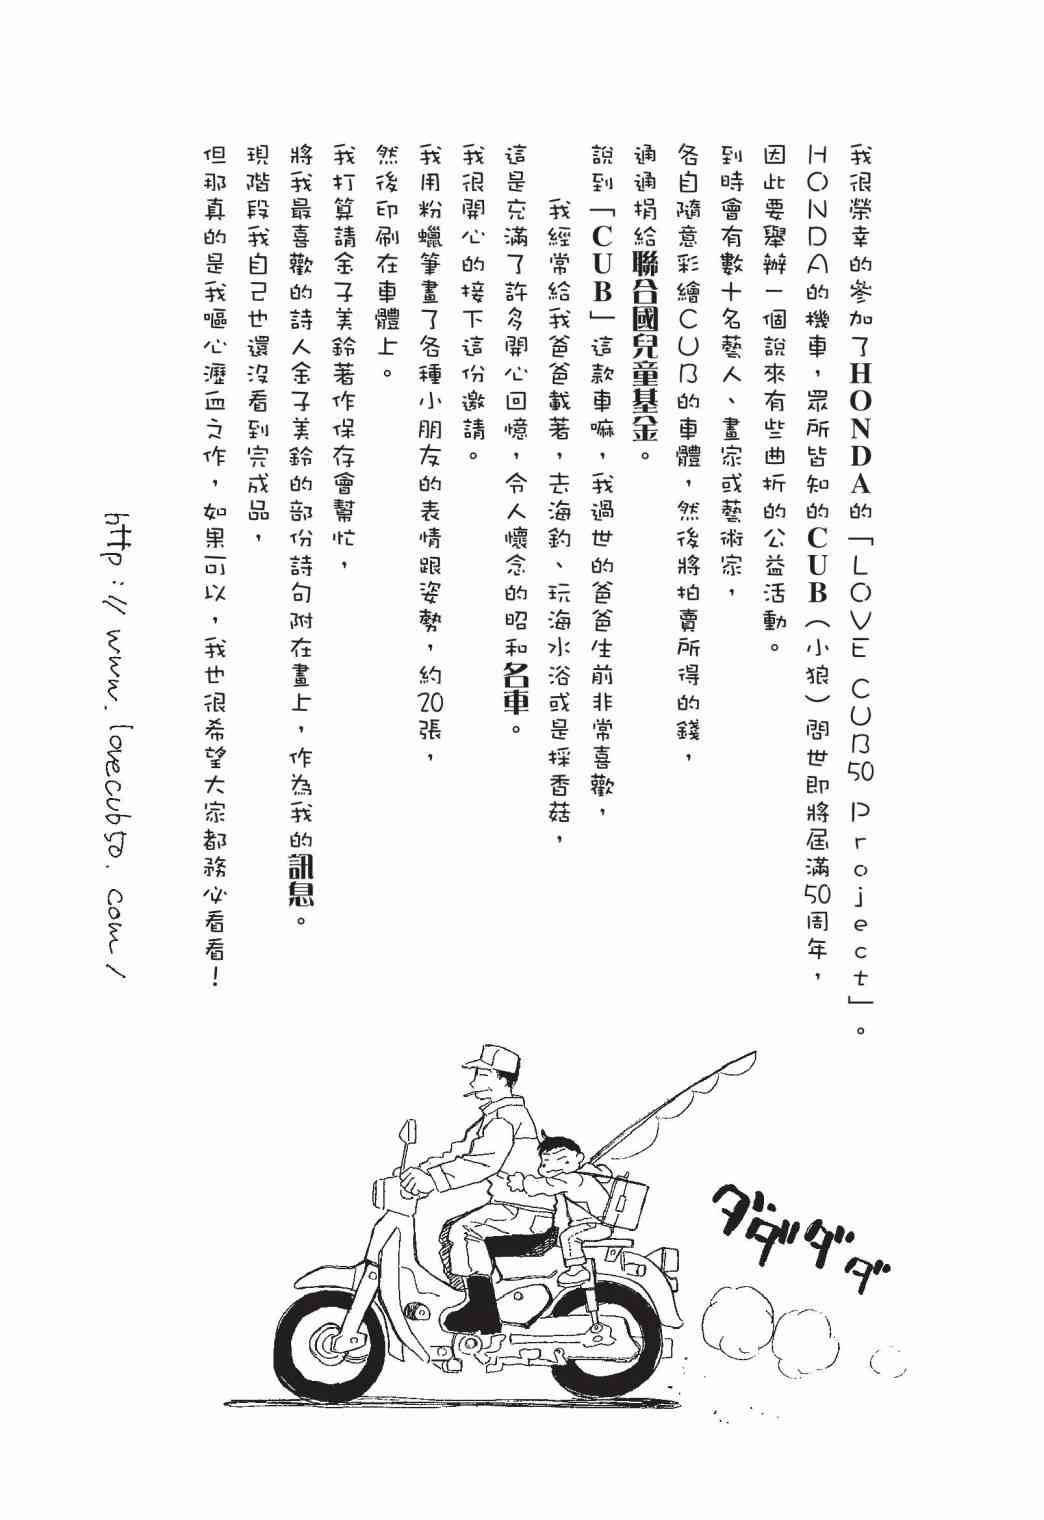 我很榮幸的參加了HONDA的「LOVE CUB50 Project」。
HONDA的機車，眾所皆知的CUB（小狼）問世即將屆滿50周年，
因此要舉辦一個說來有些曲折的公益活動。
到時會有數十名藝人、畫家或藝術家，
各自隨意彩繪CUB的車體，然後將拍賣所得的錢，
通通捐給聯合國兒童基金。
說到「CUB」這款車嘛，我過世的爸爸生前非常喜歡，
我經常給我爸爸載著，去海釣、玩海水浴或是採香菇，
這是充滿了許多開心回憶，令人懷念的昭和名車。
我很開心的接下這份邀請。
我用粉蠟筆畫了各種小朋友的表情跟姿勢，約20張，
然後印刷在車體上。
我打算請金子美鈴著作保存會幫忙，
將我最喜歡的詩人金子美鈴的部份詩句附在畫上，作為我的訊息。
現階段我自己也還沒看到完成品，
但那真的是我嘔心瀝血之作，如果可以，我也很希望大家都務必看看！
http://www.lovecub50.com/
ダダダダ